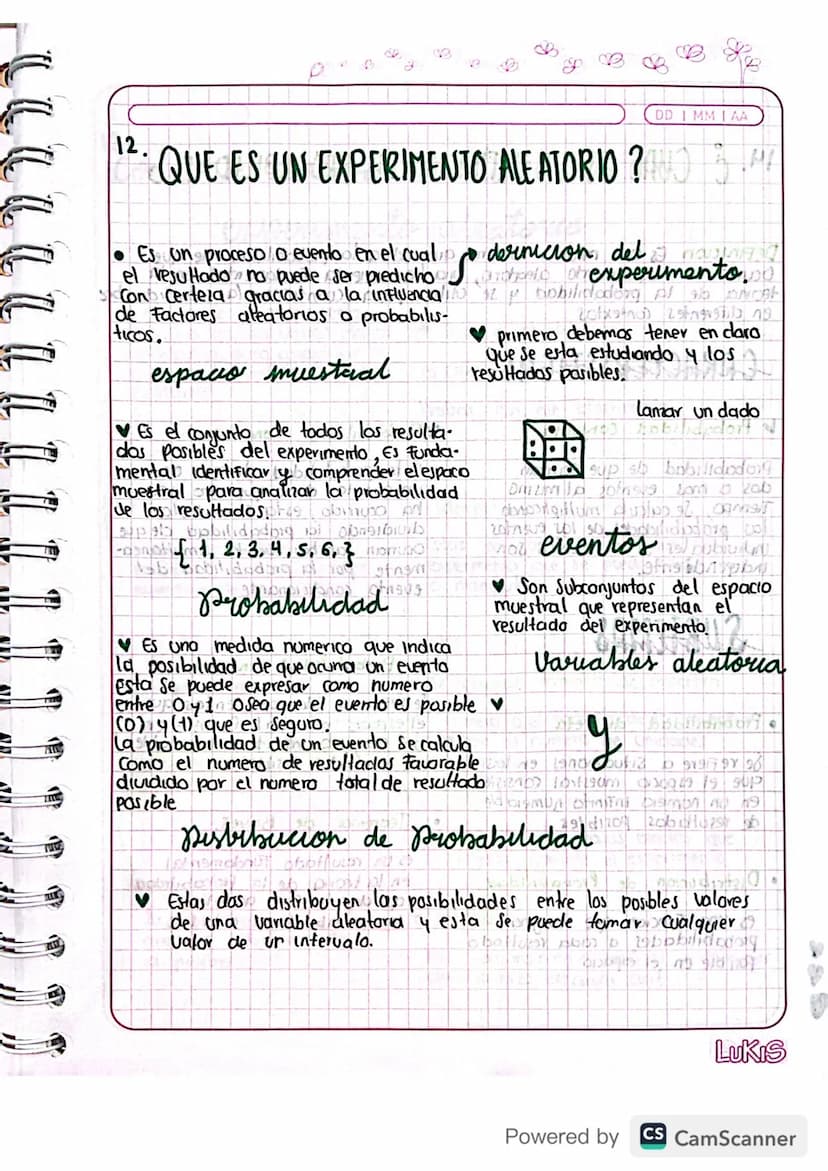 DD | MM | AA
12. QUE ES UN EXPERIMENTO ALEATORIO?
• Es un proceso o evento en el cual
el resultado no puede ser predicho
con certeza gracias a la influencia
de factores aleatorios o probabilis-
ticos.
definicion del
experimento.
♥ primero debemos tener en claro
que se esta estudiando y los
resultados posibles.
espacio muestral
lanzar un dado
♥ Es el conjunto de todos los resulta-
dos posibles del experimento, Es funda-
mental identificar y comprender el espacio
muestral para analizar la probabilidad
de los resultados.
{1, 2, 3, 4, 5, 6,}
eventos
♥ Son subconjuntos del espacio
muestral que representan el
resultado del experimento.
Probabilidad
♥ Es una medida numerica que indica
la posibilidad de que ocurra un evento
esta se puede expresar como numero
entre 0 y 1 osea que el evento es posible
(0) y (1) que es seguro.
La probabilidad de un evento se calcula
como el numero de resultados favorable
dividido por el numero total de resultado
posible
Variables aleatoria
♥
y
Distribucion de Probabilidad
♥ Estas dos distribuyen las posibilidades entre los posibles valores
de una variable aleatoria y esta se puede tomar cualquier
valor de un intervalo.
LuKIS
Powered by CS CamScanner